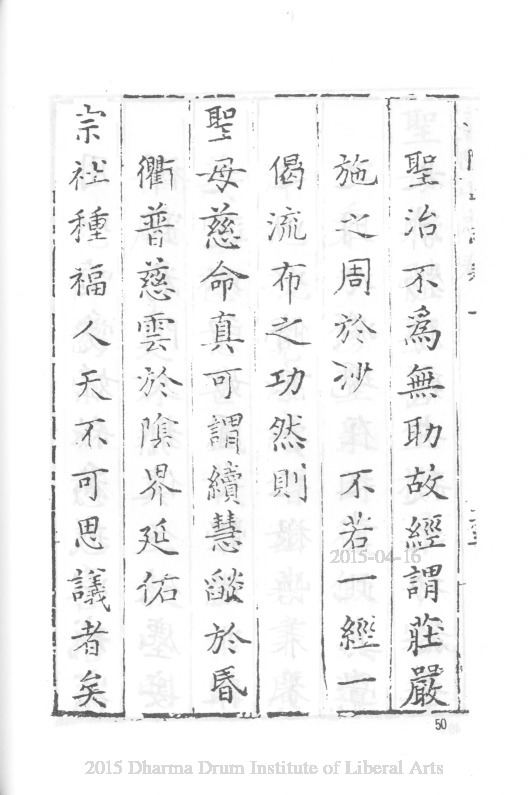 聖治不爲無助故經謂莊嚴
施之周於沙 不若一經一
偈流布之功然則
聖母慈命真可謂續慧燄於昏
衢普慈雲於隂界延佑
宗社種福人天不可思議者矣
50
2015-04-16
2015 Dharma Drum Institute of Liberal Arts